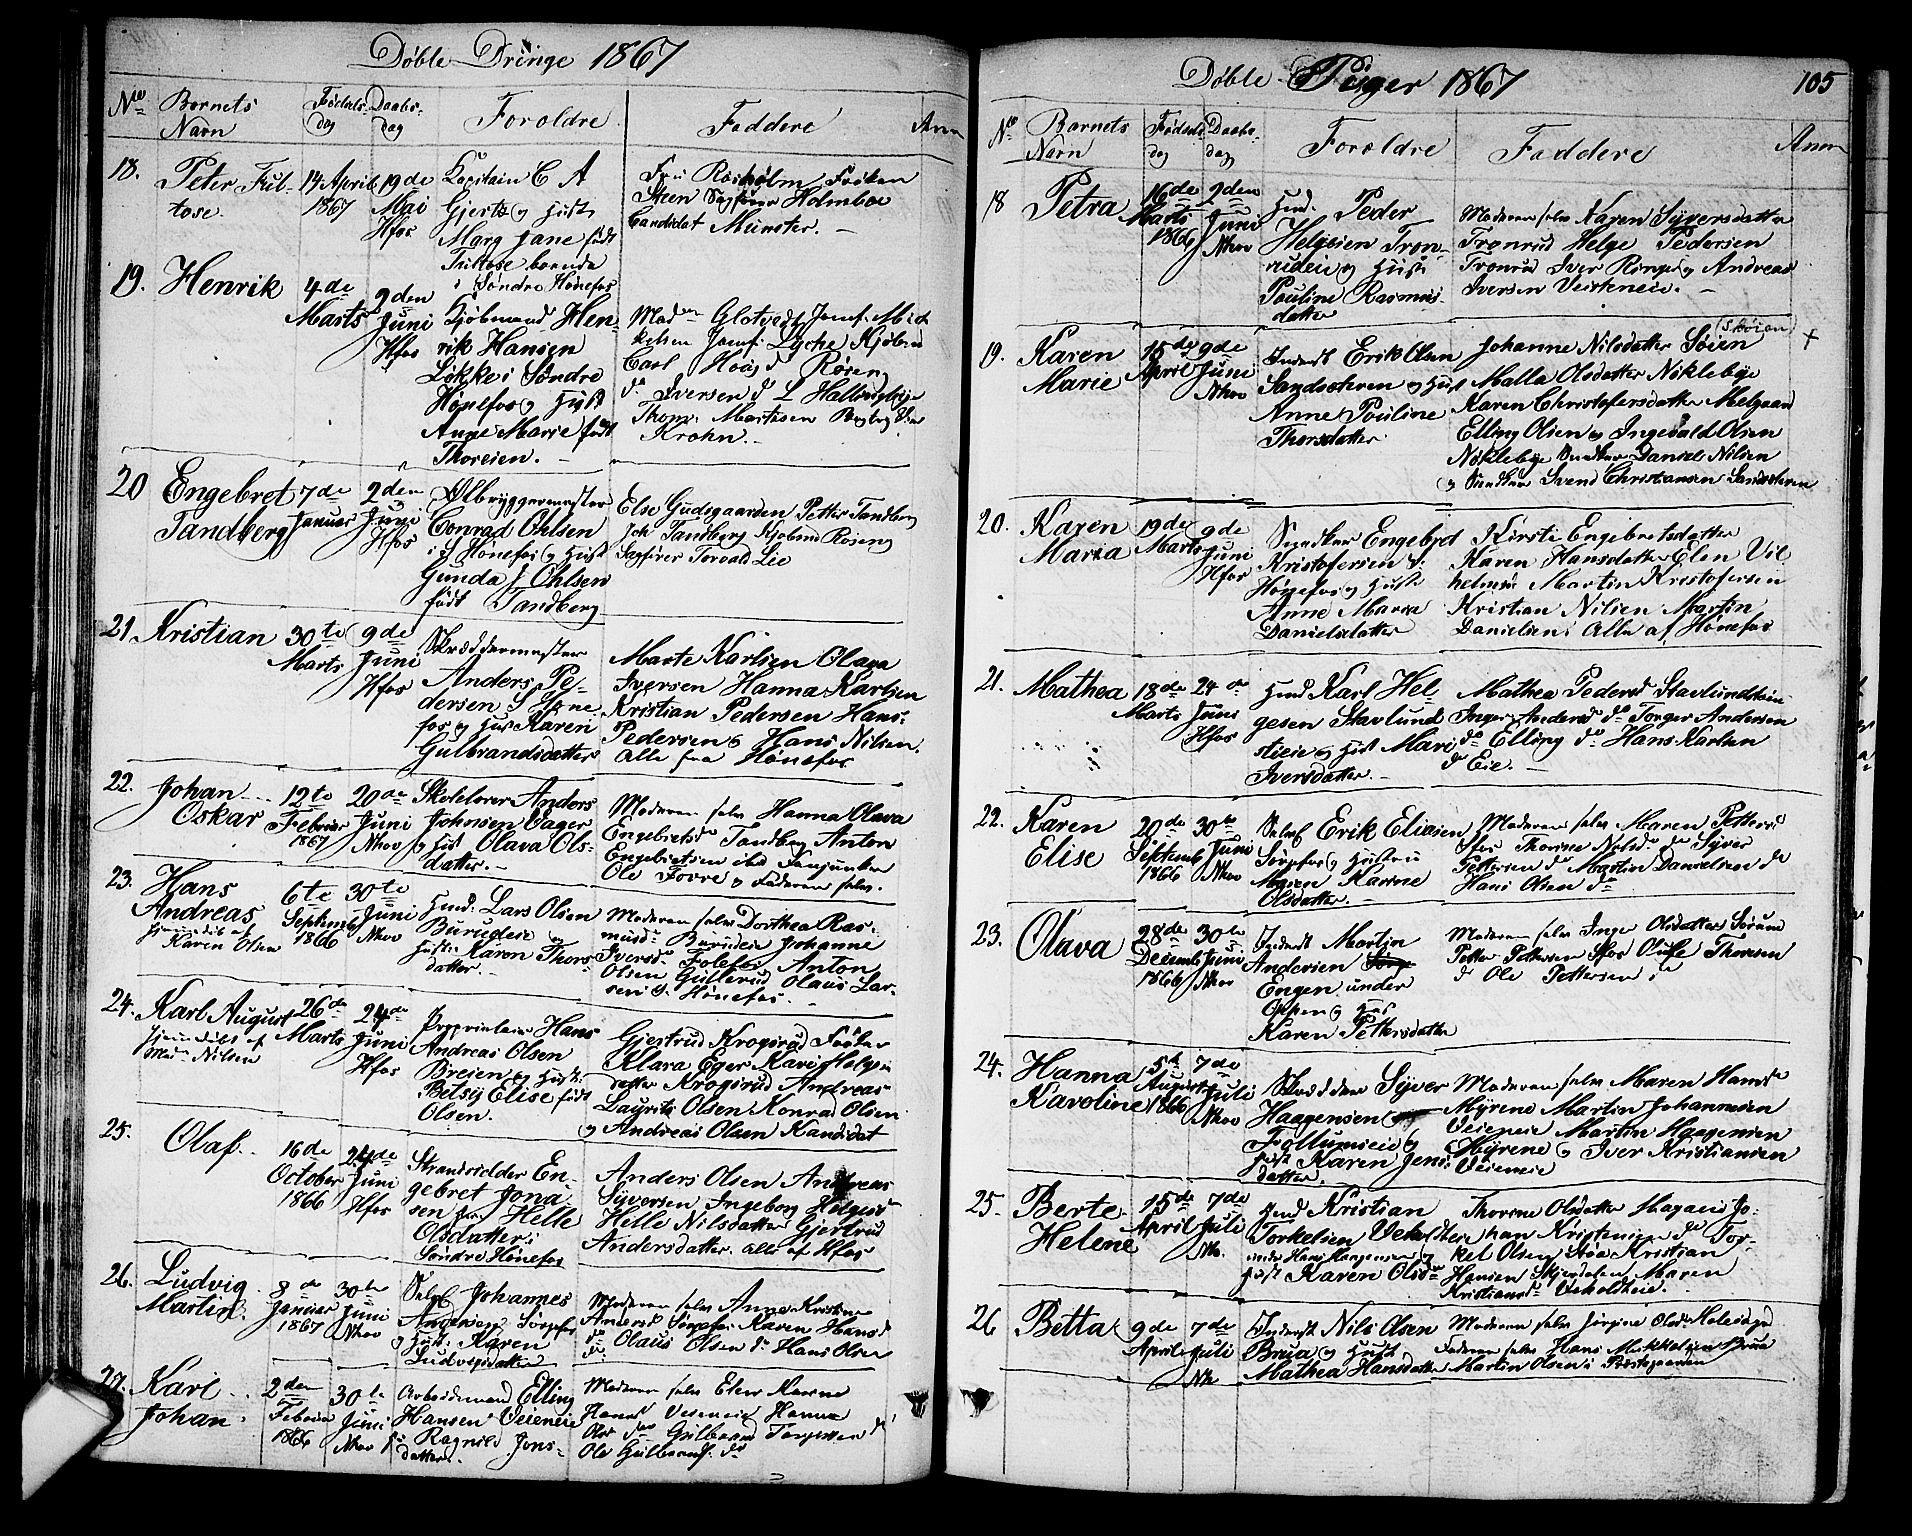 Døbte Dringe 1867
No
Barnets Navn
Fødsels dag
Daabs dag
Foroldre
Faddere
Anm
18.
Peter Tril-
tose.
14 April
1867
19de
Mai
Hfos
Kapitain C A
Gjertz og Hust
Marg Jane født
Triltose boende
i Søndre Hønefos
Steen Sagfører Holmboe
Candidat Münster.
19.
Henrik
4de
Marts
2den
Juni
Hfos
Kjøbmand Hen-
rik Hansen
Løkke i Søndre
Hønefos og Hust
Anne Marie født
Thoresen.
Carl Hoag do Røseng
do Iversen do L Hallingbye
Thom. Martisen
Krohn.
20
Engebret
Tandberg
7de
Januar
2den
Juni
Hfos
Ølbryggermester
Conrad Ohlsen
i S Hønefos og Hust
Gunda J Ohlsen
født Tandberg
Else Gudsgaarden Petter Tandberg
Joh Tandberg Kjøbmd Røseng
Sagfører Torvald Lie
21
Kristian
30te
Marts
9de
Juni
Hfos
Skræddermester
Anders Pe-
dersen S Høne-
fos og Hust Karen
Gulbrandsdatter
Marte Karlsen Olava
Iversen Hanna Karlsen
Kristian Pedersen Hans
Pedersen og Hans Nilsen.
Alle fra Hønefos
22.
Johan
Oskar
12te
Februar
1867
20de
Juni
Nhov
Skolelærer Anders
Johnsen Vager
og Hust Olava Ols-
datter.
Moderen selv Hanna Olava
Engebretsd Tandberg Anton
Engebretsen ibid
Ole Fovre og Faderen selv.
23.
Hans
Andreas
Karen Olsen
6te
Septemb
1866
30te
Juni
Nhov
Husd. Lars Olsen
Burudeie og
Hust. Karen Thors-
datter.
Moderen selv Dorthea Ras-
musd Burudeie Johanne
Iversd Folefos Anton
Olsen Gullerud Olaus Lar-
sen S. Hønefos.
24.
Karl August
Nilsen
26de
Marts
24de
Juni
Hfos
Proprietair Hans
Andreas Olsen
Breien og Hust.
Betsy Elise født
Olsen.
Gjertrud Krogsrud Frøken
Klara Eger Kari Helges
datter Krogsrud Andreas
Lauritz Olsen Konrad Olsen
og Andreas Olsen Kandidat
25.
Olaf.
16de
October
1866
24de
Juni
Hfos
Strandsidder En-
gebret Jona
sen og Helle
Olsdatter i
Søndre Hønefos
Anders Olsen Andreas
Syversen Ingeborg Helgesd
Helle Nilsdatter Gjertrud
Andersdatter. alle af Hfos
26.
Ludvig
Martin
8de
Januar
1867
30te
Juni
Nhov
Selvf Johannes
Andersen Sørpfos
og Hust. Karen
Ludvigsdatter
Moderen selv Anne Kristine
Andersd Sørpfos Karen Hansd
do Olaus Olsen do Hans Olsen
do
27.
Karl
Johan
2den
Februar
1866
30te
Juni
Nhov
Arbeidsmand Elling
Hansen Veieneie
Ragnild Jons-
datter.
Moderen selv Elen Karine
Hansd Veieneie Hanna
Olsd do Gulbrand Torgersen do
Ole Gulbrands. do
Døbte Piger 1867
105
No
Barnets Navn
Fødsels dag
Daabs dag
Foroldre
Faddere
Anm
18
Petra
16de
Marts
1866
2den
Juni
Nhov
Husd. Peder
Helgesen Tron-
rudeie og Hust.
Pauline Rasmus-
datter
Moderen selv Karen Syversdatter
Tronrud Helge Pedersen
Tronrud Iver Ringe og Andreas
Iversen Veisteneie.
19.
Karen
Marie
15de
April
9de
Juni
Nhov
Inderst Erik Olsen
Sandsehren og Hust
Anne Pouline
Thorsdatter.
(Skøien)
Johanne Nilsdatter Søien
Malla Olsdatter Nøklebye
Karen Christofersdatter Melgaan
Elling Olsen og Ingevald Olsen
Nøklebye Snedker Daniel Nilsen
og Snedker Svend Christiansen Sandsehren
20.
Karen
Maria
19de
Marts
9de
Juni
Hfos
Snedker Engebret
Kristofersen S.
Hønefos og Hust.
Anne Maria
Danielsdatter
Kirsti Engebretsdatter
Karen Hansdatter Elen Vil
helmsen Martin Kristofersen
Kristian Nilsen Martin
Danielsen. Alle af Hønefos
21.
Mathea
18de
Marts
24de
Juni
Hfos
Husd Karl Hel-
gesen Stavlund
steie og Hust Mari
Iversdatter.
Mathea Pedersd Stavlundsteie
Inger Andersd do Torger Andersen
do Elling do Hans Karlsen
do Eie.
22.
Karen
Elise
20de
Septemb
1866
30te
Juni
Nhov
Selvf Erik Eliasen
Sørpfos og Hustru
Maren Karine
Olsdatter.
Moderen selv Maren Petters
Sfos Thorine Nilsd do Syver
Pettersen do Martin Danielsen do
Hans Olsen do
23.
Olava
28de
Decemb
1866
30te
Juni
Nhov
Inderst Martin
Andersen
Engen under
Oppen og Hust
Karen Pettersdatter
Moderen selv Inge Olsdatter Sørum
Petter Pettersen Sfos Oluf Thoresen
do Ole Pettersen do
24.
Hanna
Karoline
5te
August
1866
7de
Juli
Nhov
Skrædder Syver
Haagensen
Follumseie og
Hust Karen Jens-
datter.
Moderen selv Maren Hansd
Myrene Martin Johannesen
Veieneie Martin Haagensen
Myrene og Iver Kristiansen
Veieneie
25.
Berte
Helene
15de
April
7de
Juli
Nh.
Husd Kristian
Torkelsen Veholdteie
under Hans Haagensen og
Hust Karen Olsd
Thorine Olsdatter Hagane Jo-
han Kristensen do Tor-
kel Olsen Moa Kristian
Hansen Skjerdalen Maren
Kristiansd Veholdteie.
26
Betta
9de
April
7de
Juli
Nh
Inderst Nils Olsen
Brua og Hust
Mathea Hansdatter
Moderen selv Jørgine Olsd
Faderen selv Hans Mikkelsen Brua
Martin Olsen i Præstegaarden